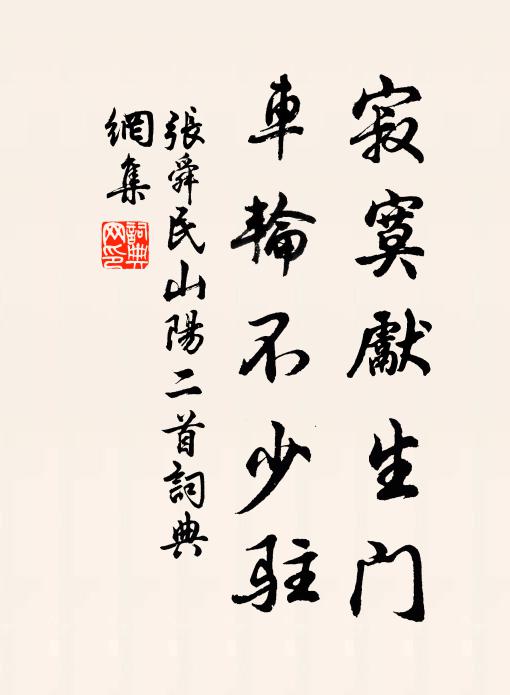 寂寞獻生門
車輪不少駐
張舜民山陽二首詞典
網集
詞典網印